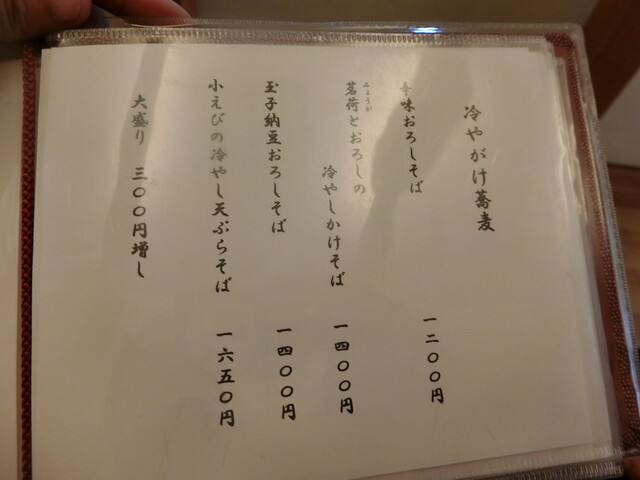 冷やがけ蕎麦
辛味おろしそば 一二〇〇円
みょうが
茗荷とおろしの
冷やしかけそば 一四〇〇円
玉子納豆おろしそば 一四〇〇円
小えびの冷やし天ぷらそば 一六五〇円
大盛り 三〇〇円増し